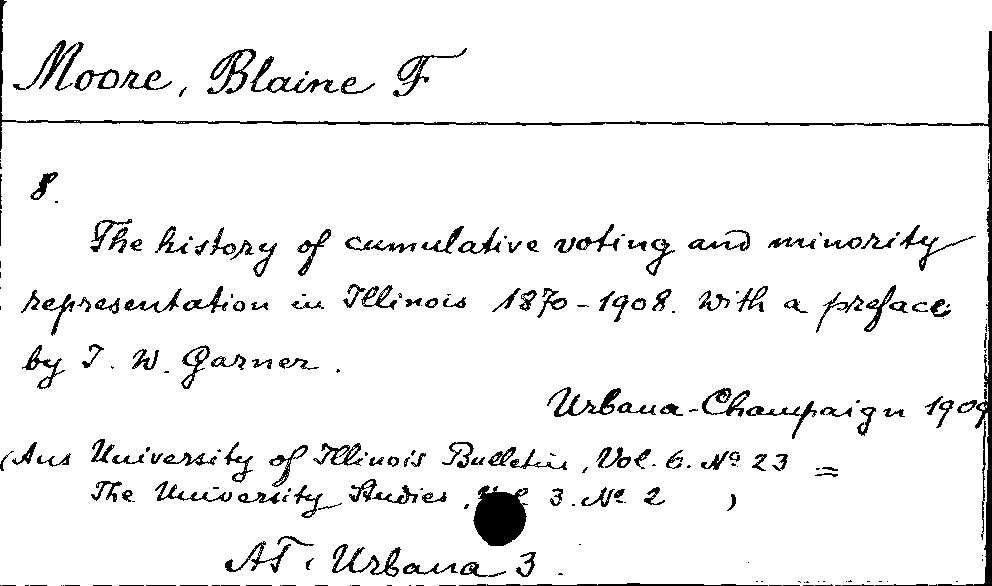 Moore, Blaine F
8.
The history of cumulative voting and minority
representation in Illinois 1870-1908. With a preface
by I. W. Garner.
Urbana-Champaign 1909
(Aus University of Illinois Bulletin, Vol. 6. No 23 =
The University Studies, Vol. 3. No 2 )
AT. Urbana 3.